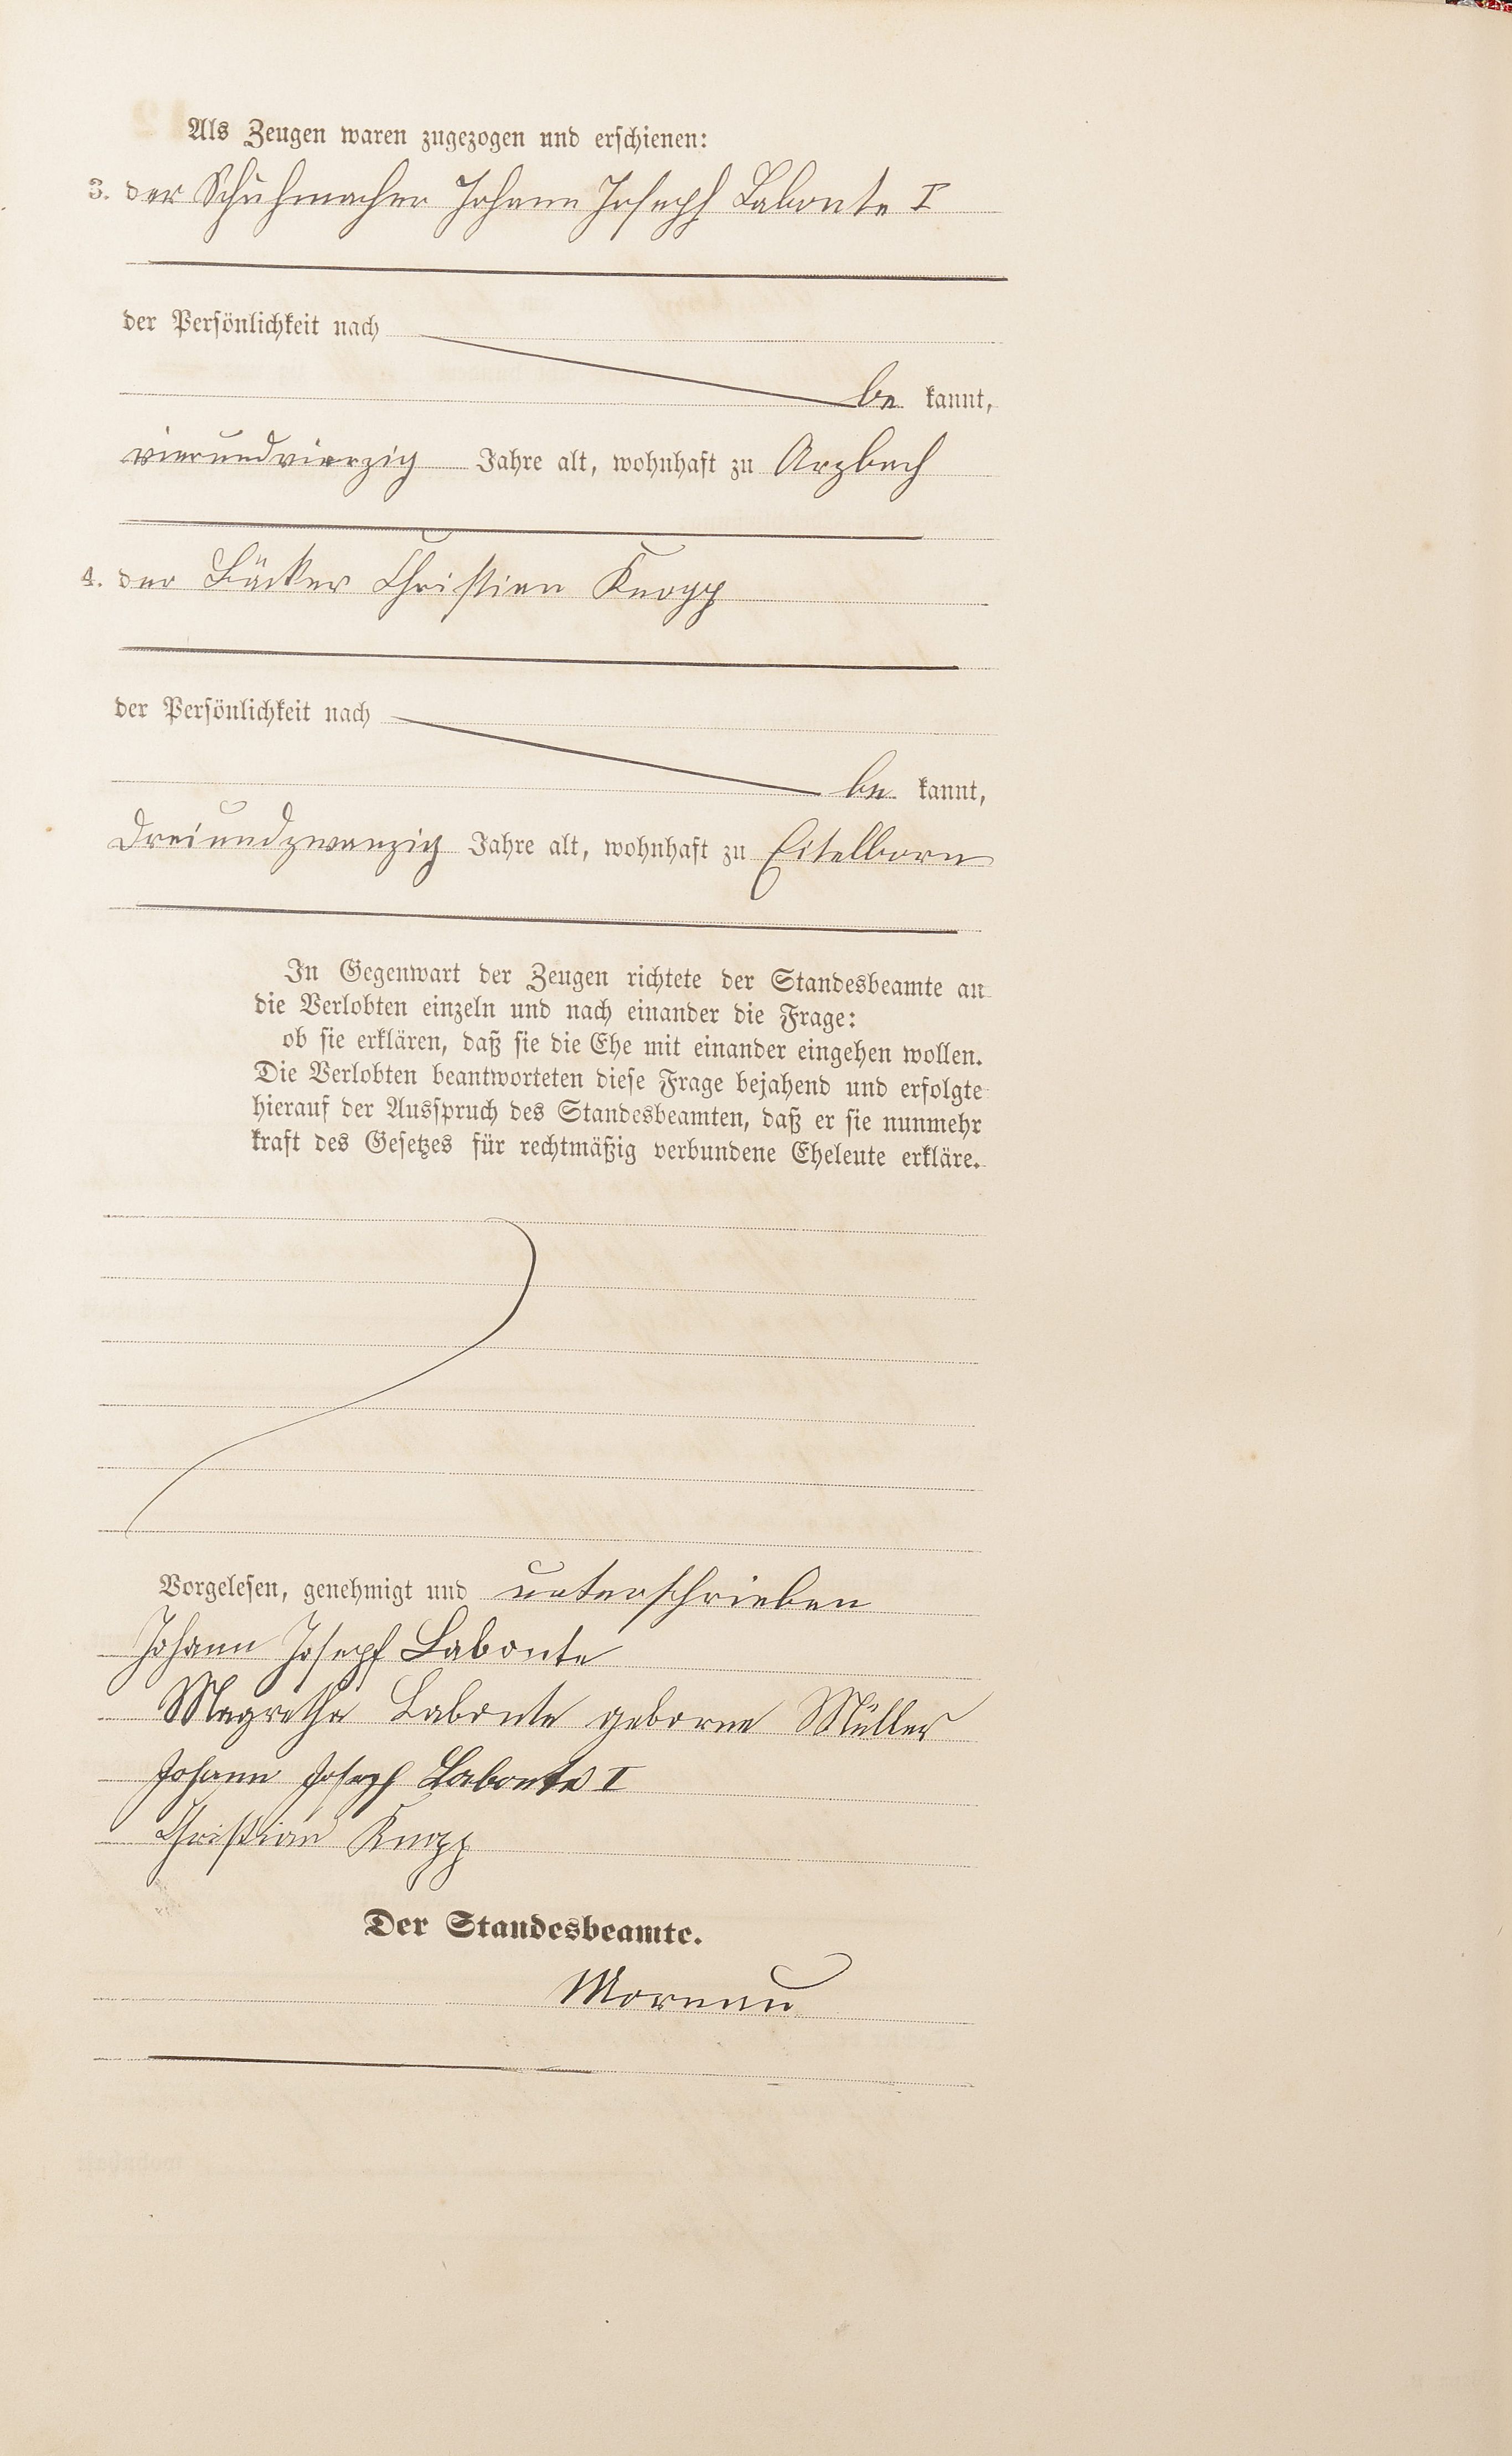 Als Zeugen waren zugezogen und erschienen:
3. der Schuhmacher Johann Joseph Labonte I
der Persönlichkeit nach
be kannt,
vierundvierzig Jahre alt, wohnhaft zu Arzbach
4. der Bäcker Christian Knopp
der Persönlichkeit nach
be kannt,
dreiundzwanzig Jahre alt, wohnhaft zu Eitelborn
In Gegenwart der Zeugen richtete der Standesbeamte an
die Verlobten einzeln und nach einander die Frage:
ob sie erklären, daß sie die Ehe mit einander eingehen wollen.
Die Verlobten beantworteten diese Frage bejahend und erfolgte
hierauf der Ausspruch des Standesbeamten, daß er sie nunmehr
kraft des Gesetzes für rechtmäßig verbundene Eheleute erkläre.
Vorgelesen, genehmigt und unterschrieben
Johann Josepf Labonte
Magretha Labonte geborne Müller
Johann Joseph Labonte I
Christian Knopp
Der Standesbeamte.
Moreau